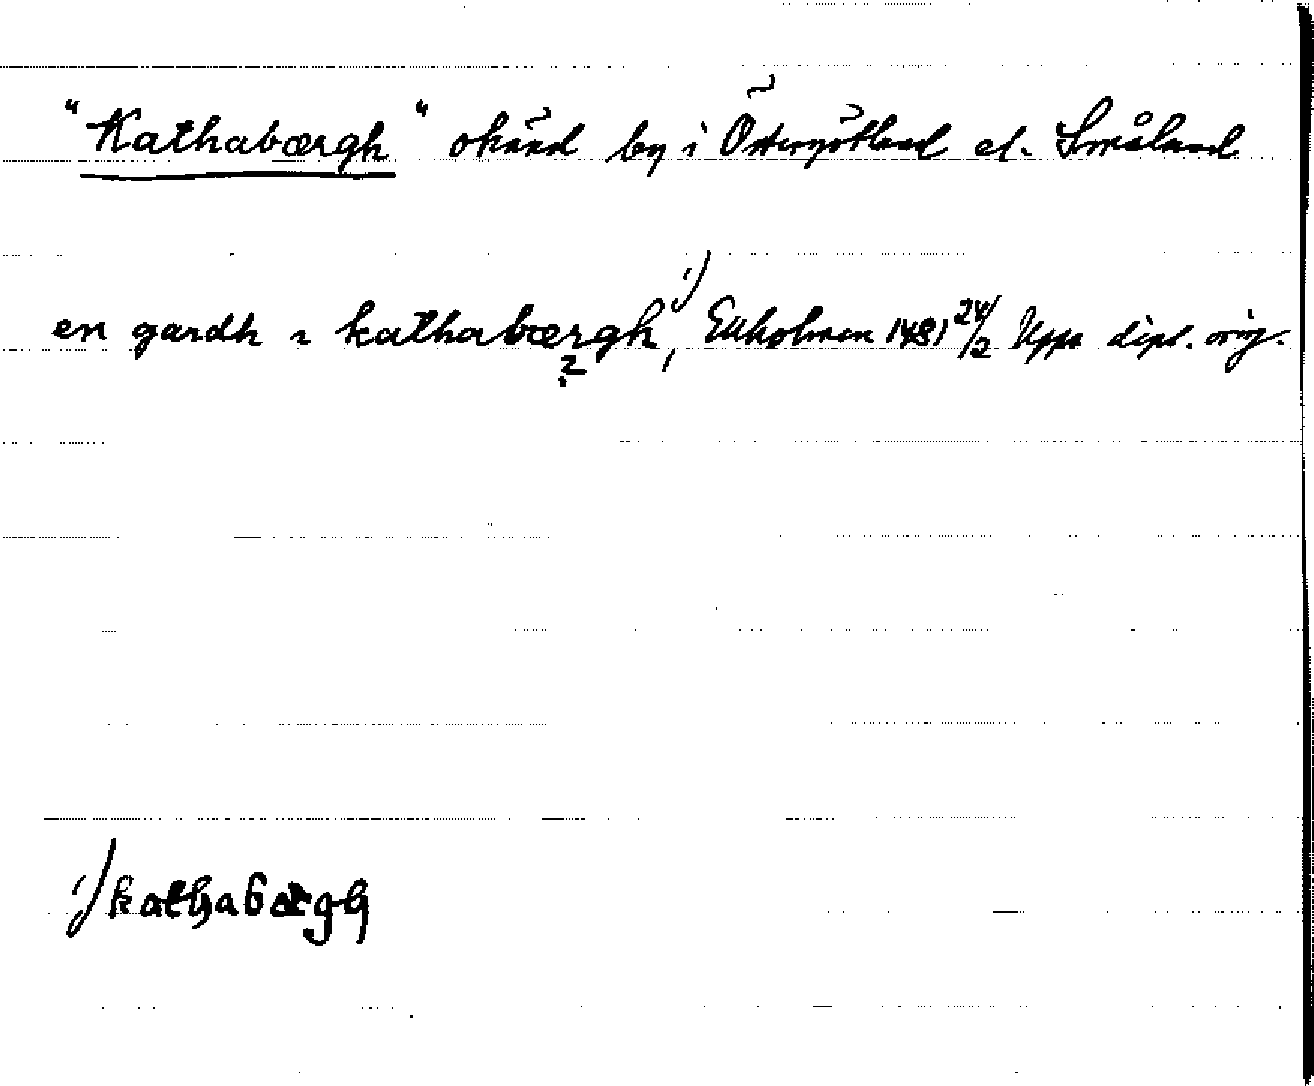 "Kathabærgh" okänd by i Östergötland el. Småland
en gardh i kathabærgh,¹⁾ Ekholmen 1481 24/2 Upps dipl. orig.
?
¹⁾ kathabærgh